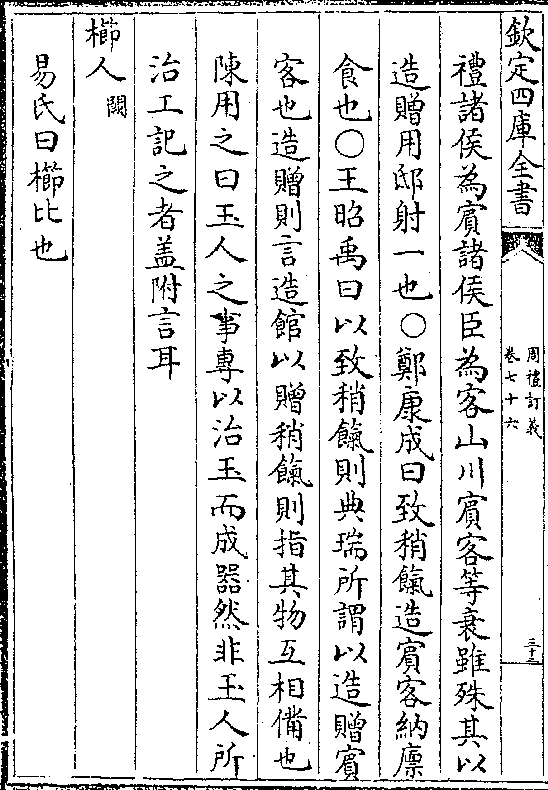 欽定四庫全書
周禮訂義
卷七十六
三十三
禮諸侯為賓諸侯臣為客山川賓客等衰雖殊其以
造贈用邸射一也○鄭康成曰致稍餼造賓客納廩
食也○王昭禹曰以致稍餼則典瑞所謂以造贈賓
客也造贈則言造館以贈稍餼則指其物互相備也
陳用之曰玉人之事專以治玉而成器然非玉人所
治工記之者盖附言耳
櫛人闕
易氏曰櫛比也